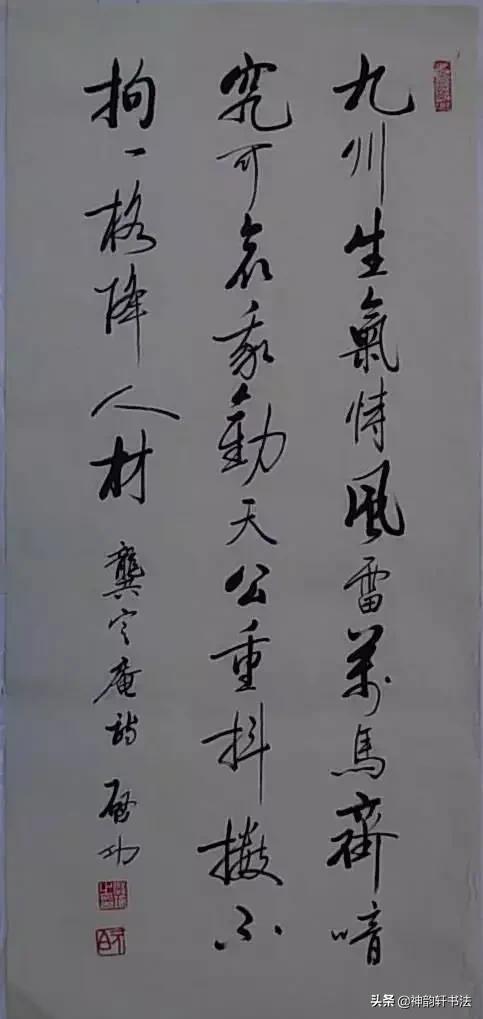 九州生氣恃風雷萬馬齊喑
究可哀我勸天公重抖擻不
拘一格降人材
龔定庵詩 啟功
头条@神韵轩书法